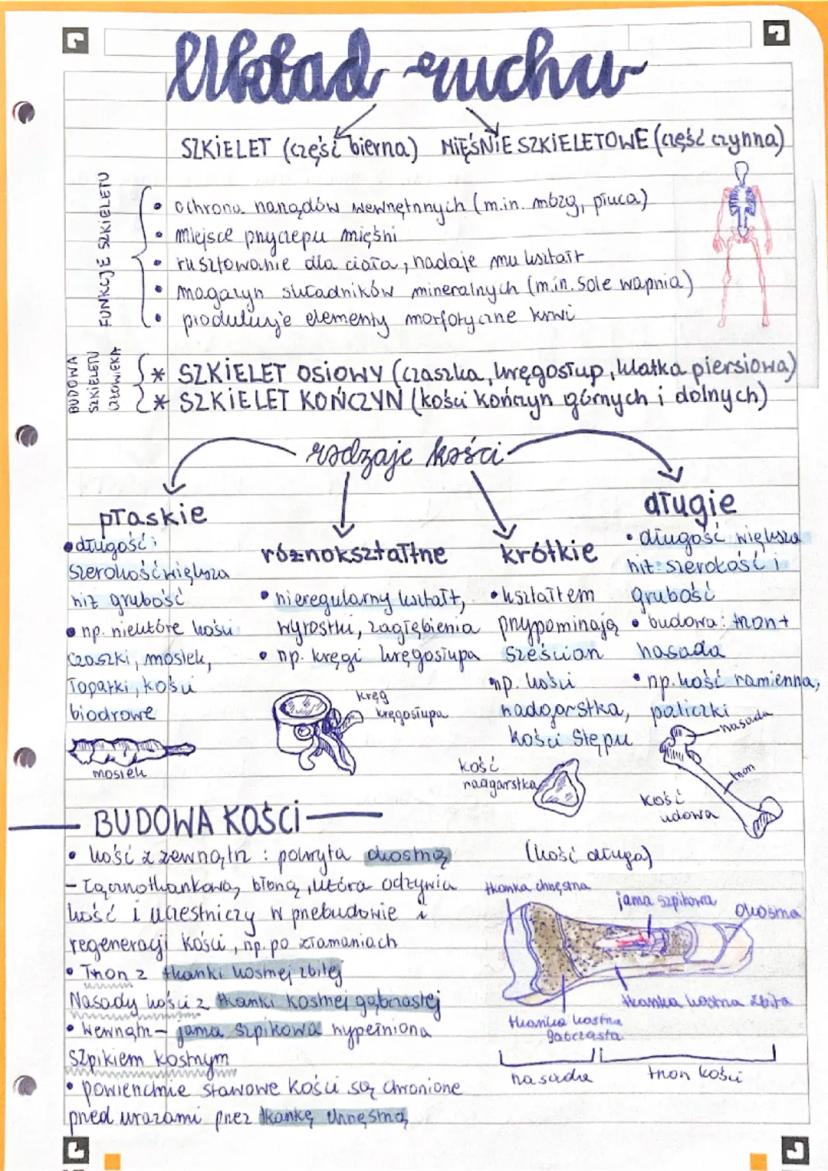 Układ ruchu
SZKIELET (część bierna)
MIĘŚNIE SZKIELETOWE (część czynna)
FUNKCJE SZKIELETU
• ochrona narządów wewnętrznych (m.in. mózg, płuca)
• miejsce przyczepu mięśni
• rusztowanie dla ciała, nadaje mu kształt
• magazyn składników mineralnych (m.in. sole wapnia)
• produkuje elementy morfotyczne krwi
BUDOWA
SZKIELETU
CZŁOWIEKA
* SZKIELET OSIOWY (czaszka, kręgosłup, klatka piersiowa)
* SZKIELET KOŃCZYN (kości kończyn górnych i dolnych)
rodzaje kości
płaskie
• długość i
szerokość większa
niż grubość
• np. niektóre kości
czaszki, mostek,
łopatki, kości
biodrowe
mostek
różnokształtne
• nieregularny kształt,
wyrostki, zagłębienia
• np. kręgi kręgosłupa
kręg
kręgosłupa
krótkie
• kształtem
przypominają
sześcian
• np. kości
nadgarstka,
kości stępu
kość
nadgarstka
długie
• długość większa
niż szerokość i
grubość
• budowa: trzon +
nasada
• np. kość ramienna,
paliczki
nasada
trzon
kość
udowa
BUDOWA KOŚCI
• kość z zewnątrz : pokryta okostną
– łącznotkankową błoną, która odżywia
kość i uczestniczy w przebudowie i
regeneracji kości, np. po złamaniach
• Trzon z tkanki kostnej zbitej
Nasady kości z tkanki kostnej gąbczastej
• Wewnątrz – jama szpikowa wypełniona
szpikiem kostnym
• powierzchnie stawowe kości są chronione
przed urazami przez tkankę chrzęstną
(kość długa)
tkanka chrzęstna
jama szpikowa
okostna
tkanka kostna zbita
tkanka kostna
gąbczasta
nasada
trzon kości